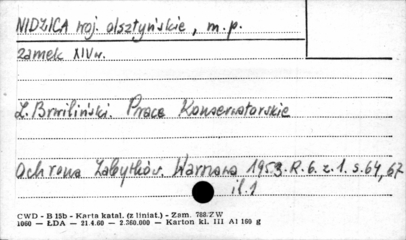 NIDZICA woj. olsztyńskie, m.p.
Zamek XIV w.
Z. Brwiliński. Prace Konserwatorskie
Ochrona Zabytków. Warszawa 1953. R. 6. z. 1. s. 64, 67
il. 1
CWD - B 15b - Karta katal. (z liniat.) - Zam. 788/ZW
1060 — ŁDA — 21.4.60 — 2.360.000 — Karton kl. III A1 160 g